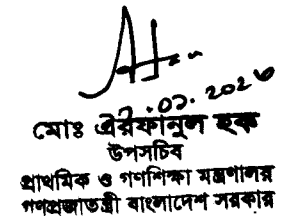 ০১.০১.২০২৬
মোঃ এরফানুল হক
উপসচিব
প্রাথমিক ও গণশিক্ষা মন্ত্রণালয়
গণপ্রজাতন্ত্রী বাংলাদেশ সরকার